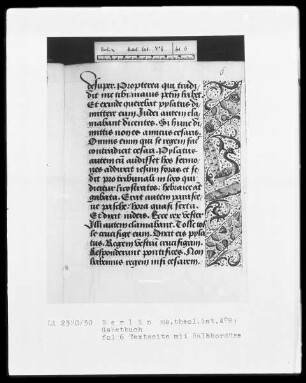 Berlin theol. lat. 4° 9 fol. 6
6
desupr. Propterea qui tradi
dit me tibi maius pctm habet.
Et exinde querebat pylatus di
mittere eum Iudei autem cla
mabant dicentes. Si hunc di
mittis non es amicus cesaris.
Omnis enim qui se regem facit
contradicit cesari. Pylatus
autem cu audisset hos sermo
nes adduxit iesum foras et se
dit pro tribunali in loco qui
dicitur licostratos. hebraice aut
gabata. Erat autem parasce
ue pasche hora quasi sexta.
Et dixit iudeis. Ecce rex vester
Illi autem clamabant. Tolle tol
le crucifige eum. Dixit eis pyla
tus. Regem vestru crucifigam.
Responderunt pontifices. Non
habemus regem nisi cesarem.
LA 2320/30 Berlin Ms.theol.lat.4°9:
Gebetbuch
fol 6 Textseite mit Halbbordüre